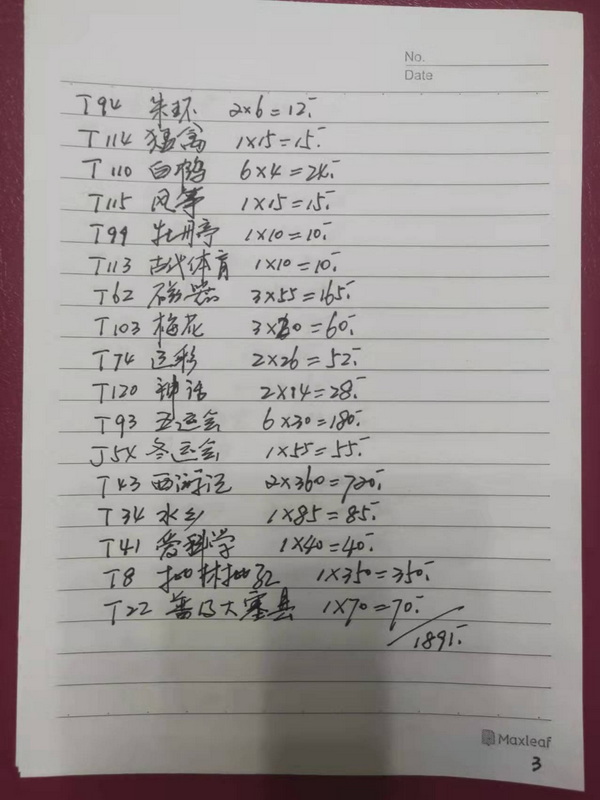 No.
Date
T94 朱环 2×6=12.-
T114 猛禽 1×15=15.-
T110 白鹤 6×4=24.-
T115 风筝 1×15=15.-
T99 牡丹亭 1×10=10.-
T113 古代体育 1×10=10.-
T62 磁器 3×55=165.-
T103 梅花 3×20=60.-
T74 辽彩 2×26=52.-
T120 神话 2×14=28.-
T93 五运会 6×30=180.-
J54 冬运会 1×55=55.-
T43 西游记 2×360=720.-
T34 水乡 1×85=85.-
T41 爱科学 1×40=40.-
T8 批林批孔 1×350=350.-
T22 普及大寨县 1×70=70.-
1891.-
Maxleaf
3